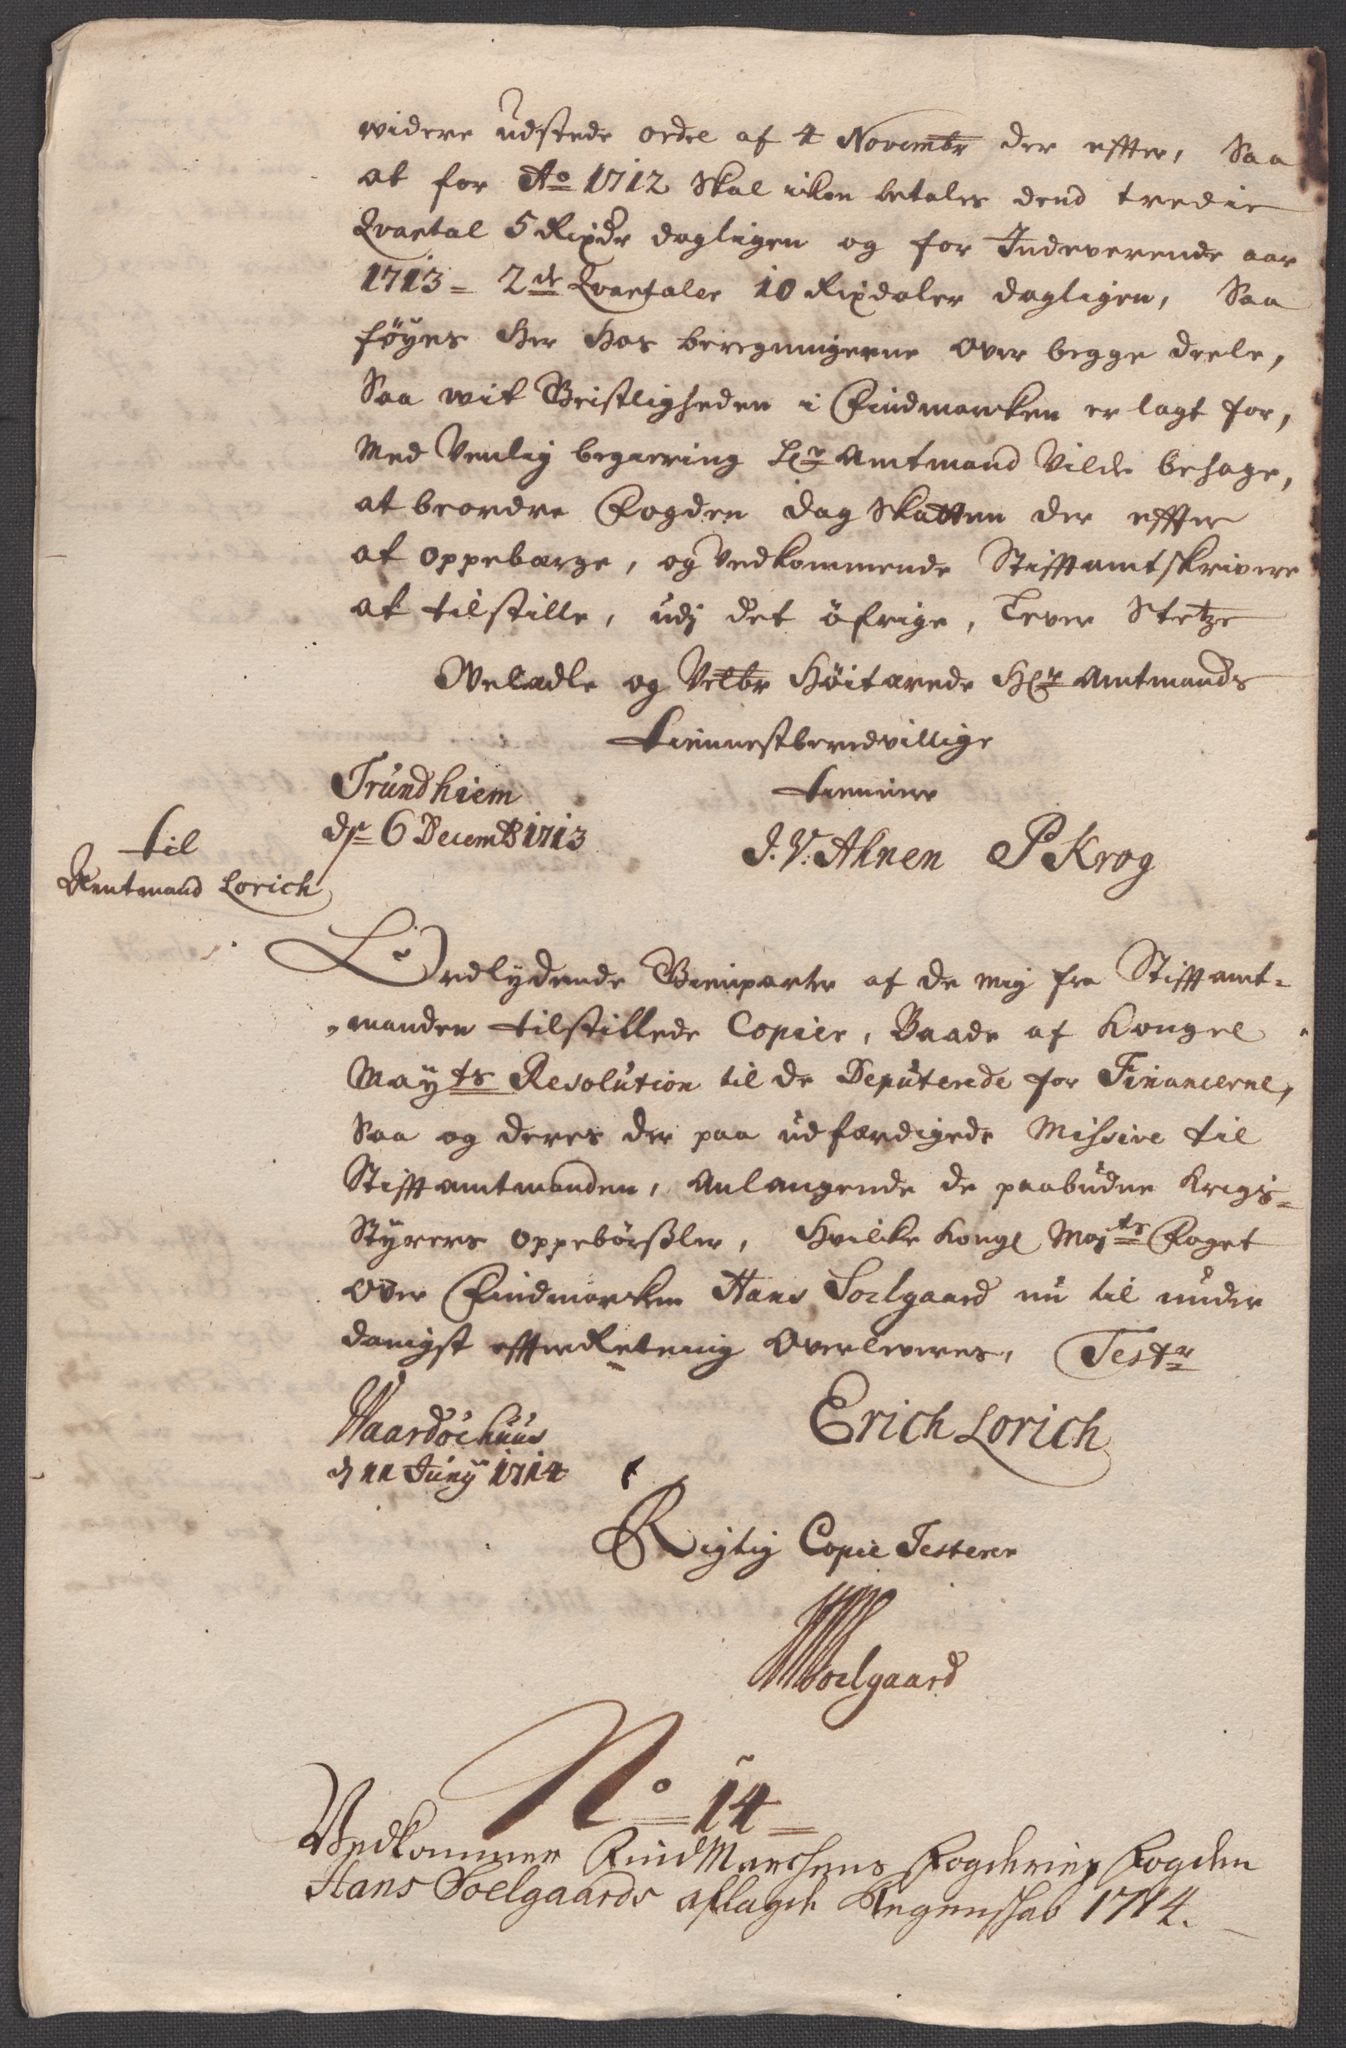 widere udstede ordre af 4 Novembr der effter, Saa
at for Ao 1712 Skal ikon betales dend tredie
Qvartal 5 Rixdr dagligen og for Indeverende aar
1713 = 2de Qvartaler 10 Rixdaler dagligen, Saa
føyes her hos beregningerne over begge deele,
Saa wit Geistligheden i Findmarcken er lagt for,
Med Venlig begiering Hr Amtmand Vilde behage,
at beordre Fogden dag Skatten der effter
at oppebærge, og vedkommende Stifftamtskrivere
at tilstille, udj det öfrige, lever Stetze
Weladle og Velbr Höitærede Hr Amtmands
tiennestberedvillige
Trundhiem
tiennere
dr 6 Decembr 1713
J. V: Ahnen P Krog
til
Amtmand Lorich
Ordlydende Gienparter af de mig fra Stifftamt-
manden tilstillede Copier, Baade af Kongel
Mayts Resolution til de Deputerede for Financerne,
Saa og deres der paa udfærdigede Missive til
Stifftamtmanden, Anlangende de paabudne Krigs-
Styrers oppebörsler, Hvilke Kongl Majts Foget
over Findmarken Hans Soelgaard nu til under
danigst effterRetning overleveres, Testr
Waardöehuus
Erich Lorich
d 11 Junij 1714
Rigtig Copie Testerer
HSoelgaard
No 14
Vedkommer FindMarchens Fogderies Fogden
Hans Soelgaards aflagde Regenskab 1714.